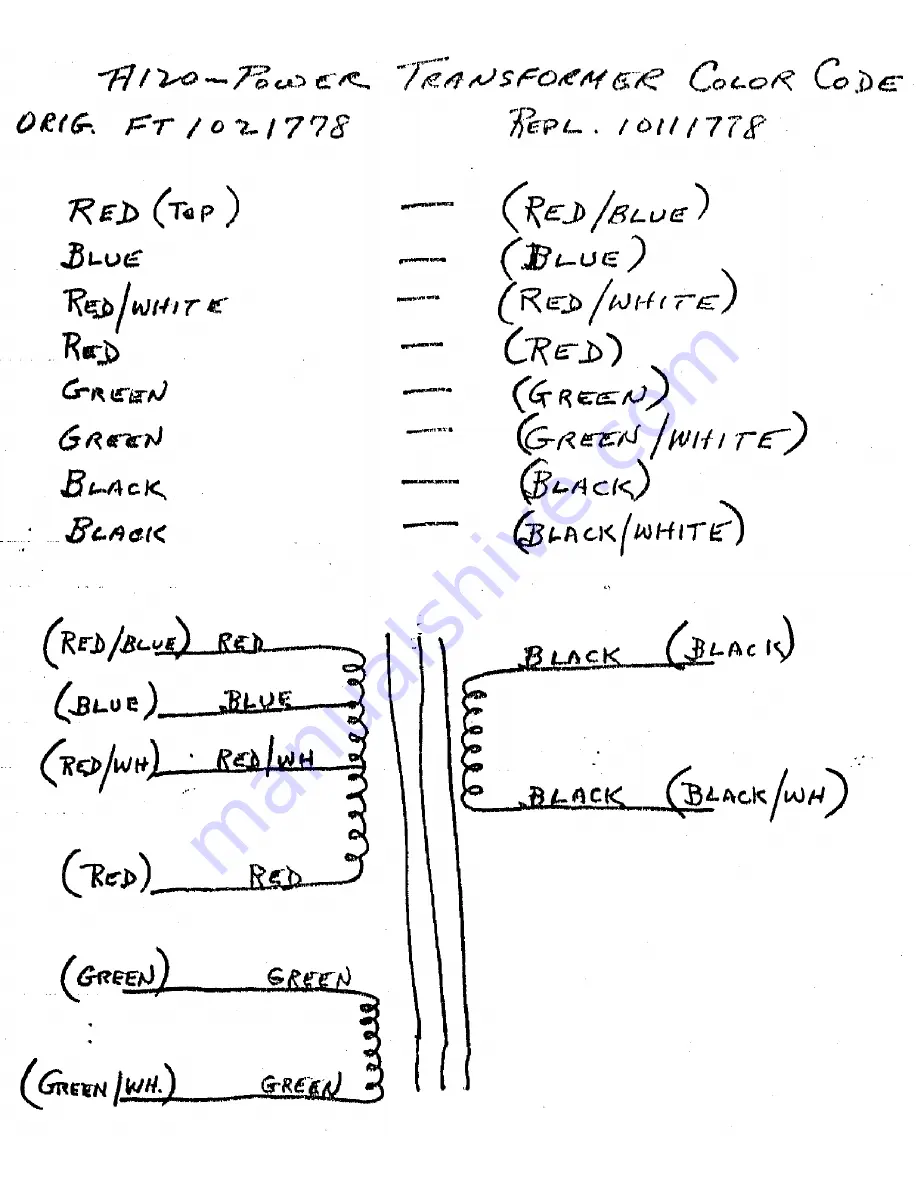 A120-POWER TRANSFORMER COLOR CODE
ORIG. FT1021778 REPL. 10111778
RED (TOP) — (RED/BLUE)
BLUE — (BLUE)
RED/WHITE — (RED/WHITE)
RED — (RED)
GREEN — (GREEN)
GREEN — (GREEN/WHITE)
BLACK — (BLACK)
BLACK — (BLACK/WHITE)
(RED/BLUE) RED
BLACK (BLACK)
(BLUE) BLUE
(RED/WH) RED/WH
BLACK (BLACK/WH)
(RED) RED
(GREEN) GREEN
(GREEN/WH.) GREEN
manualshive.com